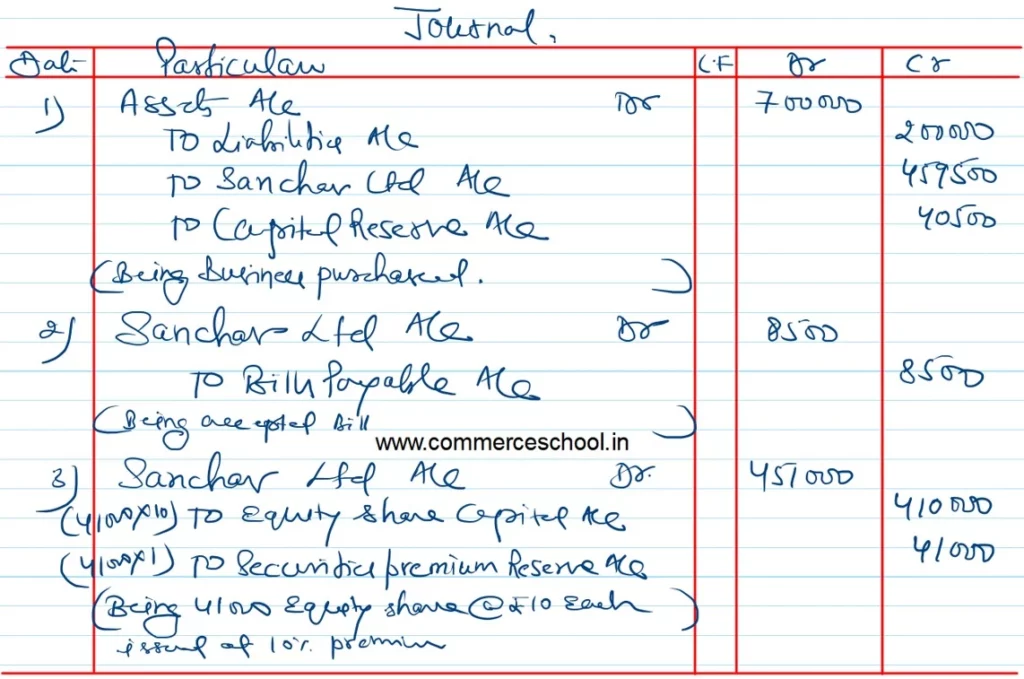 Journal.
Date Particulars L.F Dr Cr
1) Assets A/c Dr 700000
To Liabilities A/c 200000
To Sanchar Ltd A/c 459500
To Capital Reserve A/c 40500
(Being Business purchased. )
2) Sanchar Ltd A/c Dr 8500
To Bills Payable A/c 8500
(Being accepted Bill )
www.commerceschool.in
3) Sanchar Ltd A/c Dr. 451000
(41000x10) To Equity Share Capital A/c 410000
(41000x1) To Securities premium Reserve A/c 41000
(Being 41000 Equity share @ ₹10 Each )
issued at 10% premium